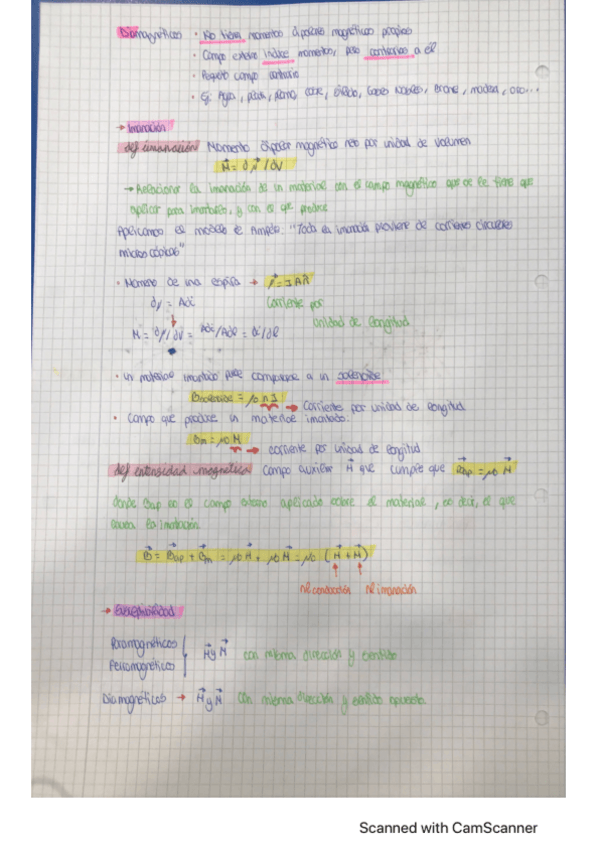 Diamagnéticos • No tienen momentos dipolares magnéticos propios
• Campo externo induce momentos, pero contrarios a él
• Pequeño campo contrario
• Ej: Agua, plata, plomo, cobre, Gases Nobles, Bronce, madera, oro...
→ Imanación
def imanación Momento dipolar magnético neto por unidad de volumen
M⃗ = dμ⃗/dV
→ Relacionar la imanación de un material con el campo magnético que se le tiene que
aplicar para imantarlo, y con el que produce
Aplicando el modelo de Ampere: "Toda la imanación proviene de corrientes circulares
microscópicas"
• Momento de una espira → μ⃗ = I A n⃗
dμ = Adi
Corriente por
unidad de longitud
M = dμ/dV = Adi/Adl = di/dl
• Un material imantado puede compararse a un solenoide
Bsolenoide = μ0 n I → Corriente por unidad de longitud
• Campo que produce un material imantado:
Bm = μ0 M
→ corriente por unidad de longitud
def intensidad magnética Campo auxiliar H⃗ que cumple que B⃗ap = μ0 H⃗
donde Bap es el campo externo aplicado sobre el material, es decir, el que
causa la imanación
B⃗ = B⃗ap + B⃗m = μ0 H⃗ + μ0 M⃗ = μ0 (H⃗ + M⃗)
nI conducción nI imanación
→ Susceptibilidad
Paramagnéticos
Ferromagnéticos
H⃗ y M⃗ con misma dirección y sentido
Diamagnéticos → H⃗ y M⃗ con misma dirección y sentido opuesto
Scanned with CamScanner